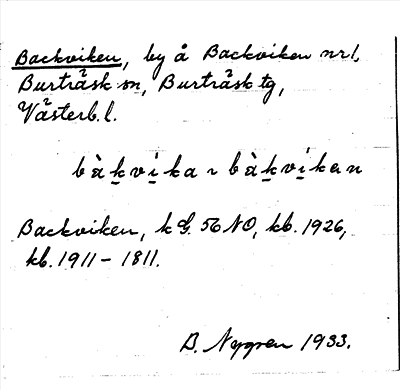 Backviken, by å Backviken nr 1,
Burträsk sn, Burträsk tg,
Västerb. l.
bàkvika ~ bàkvíkan
Backviken, k G. 56 NO, kb. 1926,
kb. 1911 - 1811.
B. Nygren 1933.